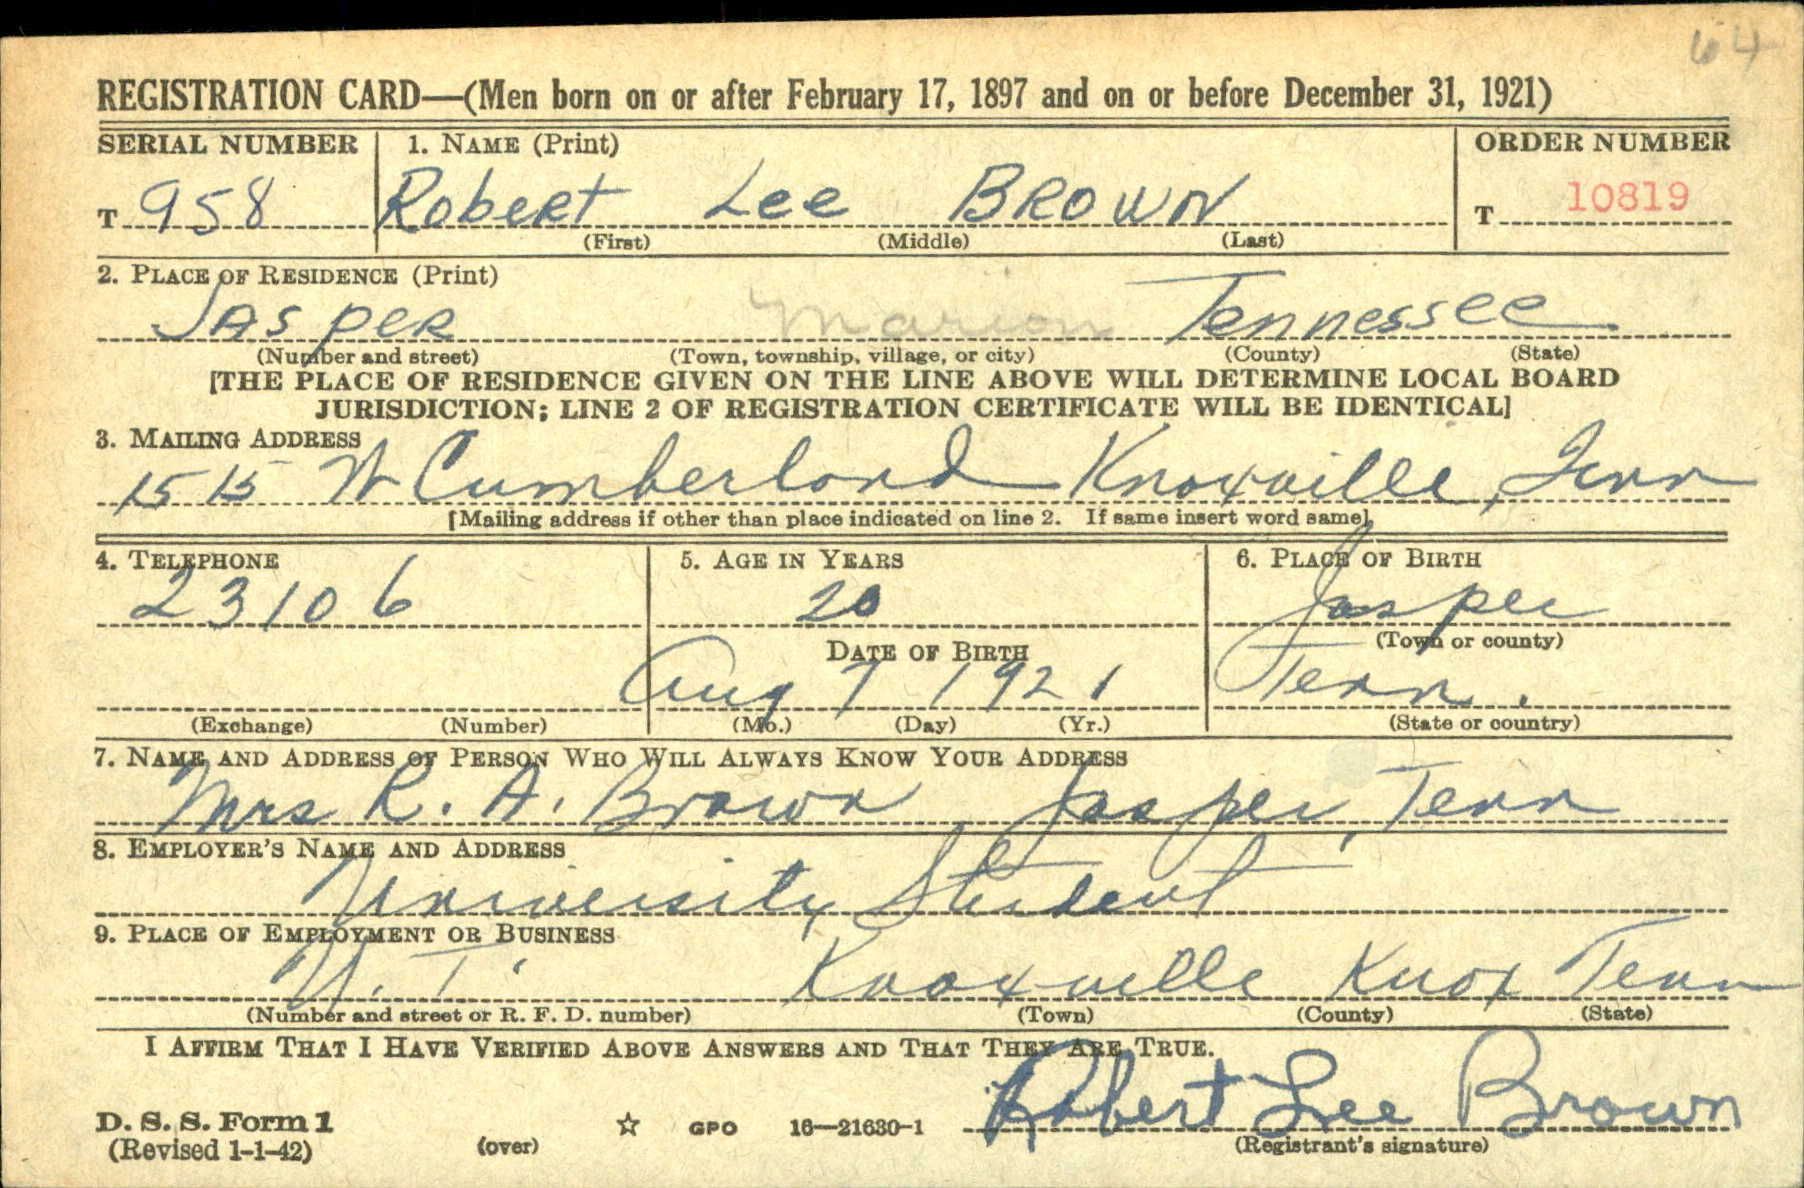 64
REGISTRATION CARD—(Men born on or after February 17, 1897 and on or before December 31, 1921)
SERIAL NUMBER 1. NAME (Print) ORDER NUMBER
T 958 Robert Lee BROWN T 10819
(First) (Middle) (Last)
2. PLACE OF RESIDENCE (Print)
Jasper Marion Tennessee
(Number and street) (Town, township, village, or city) (County) (State)
[THE PLACE OF RESIDENCE GIVEN ON THE LINE ABOVE WILL DETERMINE LOCAL BOARD
JURISDICTION; LINE 2 OF REGISTRATION CERTIFICATE WILL BE IDENTICAL]
3. MAILING ADDRESS
1515 W Cumberland Knoxville, Tenn
[Mailing address if other than place indicated on line 2. If same insert word same]
4. TELEPHONE 5. AGE IN YEARS 6. PLACE OF BIRTH
23106 20 Jasper
DATE OF BIRTH (Town or county)
Aug 7 1921 Tenn.
(Exchange) (Number) (Mo.) (Day) (Yr.) (State or country)
7. NAME AND ADDRESS OF PERSON WHO WILL ALWAYS KNOW YOUR ADDRESS
Mrs R. A. Brown Jasper, Tenn
8. EMPLOYER'S NAME AND ADDRESS
University Student
9. PLACE OF EMPLOYMENT OR BUSINESS
U. T. Knoxville Knox Tenn
(Number and street or R. F. D. number) (Town) (County) (State)
I AFFIRM THAT I HAVE VERIFIED ABOVE ANSWERS AND THAT THEY ARE TRUE.
Robert Lee Brown
D. S. S. Form 1 ☆ GPO 16—21630-1
(Revised 1-1-42) (over) (Registrant's signature)